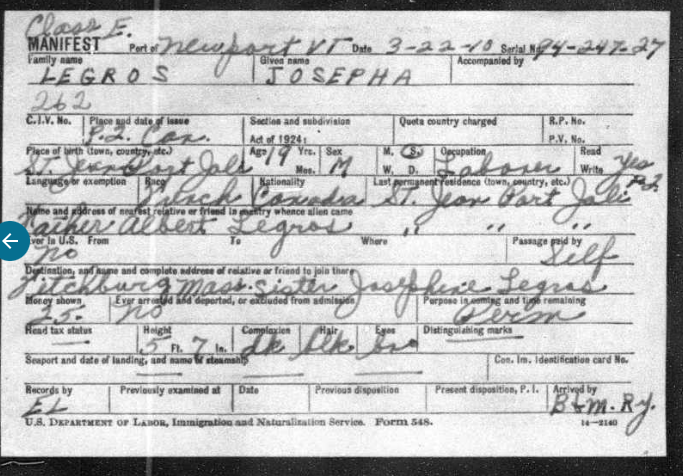 Class E.
MANIFEST Port of Newport VT Date 3-22-10 Serial No. 94-247-27
Family name Given name Accompanied by
LEGROS JOSEPH A
262
C.I.V. No. Place and date of issue Section and subdivision Quota country charged R.P. No.
P.2. Can. Act of 1924: P.V. No.
Place of birth (town, country, etc.) Age 19 Yrs. Sex M. S. Occupation Read Yes
St. Jean Port Joli Mos. M W. D. Laborer Write
Language or exemption Race Nationality Last permanent residence (town, country, etc.)
French Canada St. Jean Port Joli
Name and address of nearest relative or friend in country whence alien came
Father Albert Legros " " "
Ever in U.S. From To Where Passage paid by
No Self
Destination, and name and complete address of relative or friend to join there
Fitchburg Mass. Sister Josephine Legros
Money shown Ever arrested and deported, or excluded from admission Purpose in coming and time remaining
25- no Perm
Head tax status Height Complexion Hair Eyes Distinguishing marks
5 Ft. 7 In. dk blk bro
Seaport and date of landing, and name of steamship Con. Im. Identification card No.
Records by Previously examined at Date Previous disposition Present disposition, P.I. Arrived by
EL B&M. Ry.
U.S. DEPARTMENT OF LABOR, Immigration and Naturalization Service. Form 548. 14—2140